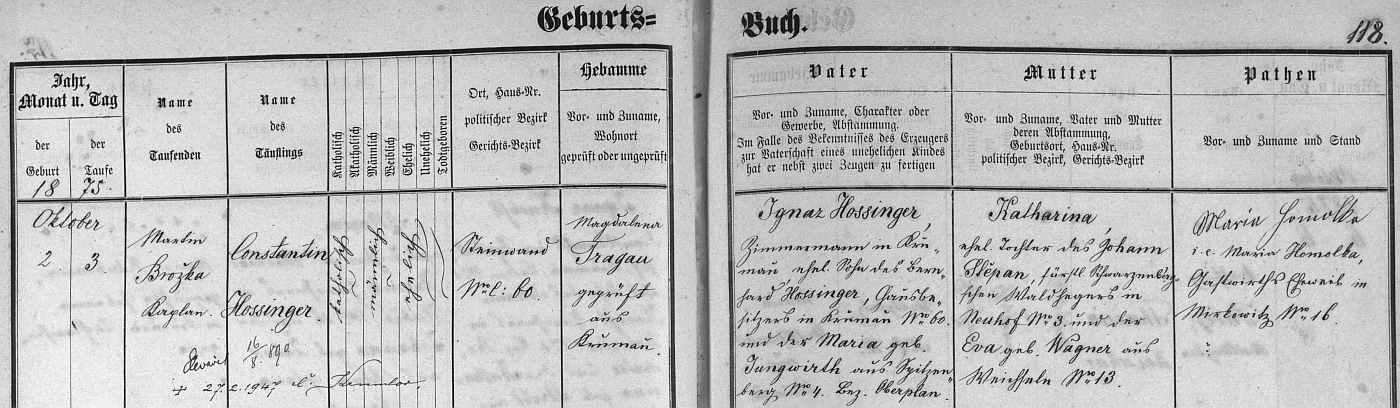 Geburts=
Buch.
118.
Jahr,
Monat u. Tag
der
Geburt
der
Taufe
18 75.
Name
des
Taufenden
Name
des
Täuflings
Katholisch
Akatholisch
Männlich
Weiblich
Ehelich
Unehelich
Todtgeboren
Ort, Haus-Nr.
politischer Bezirk
Gerichts-Bezirk
Hebamme
Vor- und Zuname,
Wohnort
geprüft oder ungeprüft
Vater
Vor- und Zuname, Charakter oder
Gewerbe, Abstammung.
Im Falle des Bekenntnisses des Erzeugers
zur Vaterschaft eines unehelichen Kindes
hat er nebst zwei Zeugen zu fertigen
Mutter
Vor- und Zuname, Vater und Mutter
deren Abstammung,
Geburtsort, Haus-Nr.
politischer Bezirk, Gerichts-Bezirk
Pathen
Vor- und Zuname und Stand
Oktober
2. 3
Martin
Brožka
Kaplan.
Constantin
Hossinger.
katholisch
männlich
ehelich
Steinwand
No C: 60.
Magdalena
Tragau
geprüft
aus
Krumau.
Ignaz Hossinger,
Zimmermann in Kru-
mau, ehel. Sohn des Bern-
hard Hossinger, Hausbe-
sitzers in Krumau No 60.
und der Maria geb.
Jungwirth aus Spitzen-
berg No 4. Bez. Oberplan.
Katharina
ehel. Tochter des Johann
Stěpan, fürstl. Schwarzenberg-
schen Waldhegers in
Neuhof No 3. und der
Eva geb. Wagner aus
Weichseln No 13.
Maria Homolka
i. e. Maria Homolka,
Gastwirths Eheweib in
Mirkowitz No 16.
16/8 890
+ 27.2.1947